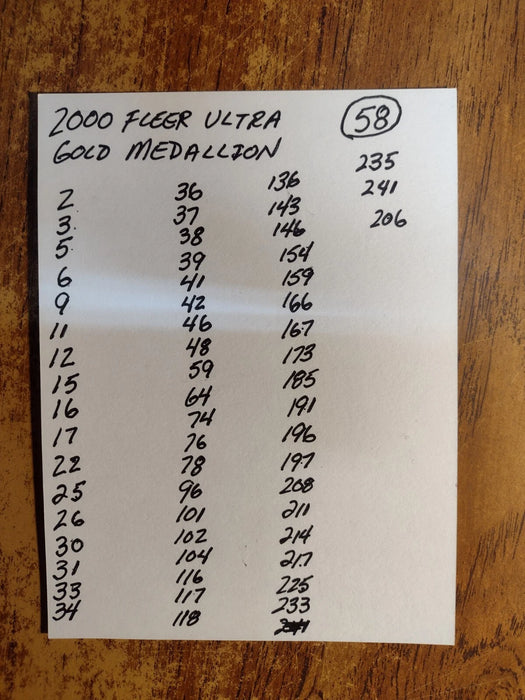 2000 FLEER ULTRA
GOLD MEDALLION
58
2
3
5
6
9
11
12
15
16
17
22
25
26
30
31
33
34
36
37
38
39
41
42
46
48
59
64
74
76
78
96
101
102
104
116
117
118
136
143
146
154
159
166
167
173
185
191
196
197
208
211
214
217
225
233
235
241
206